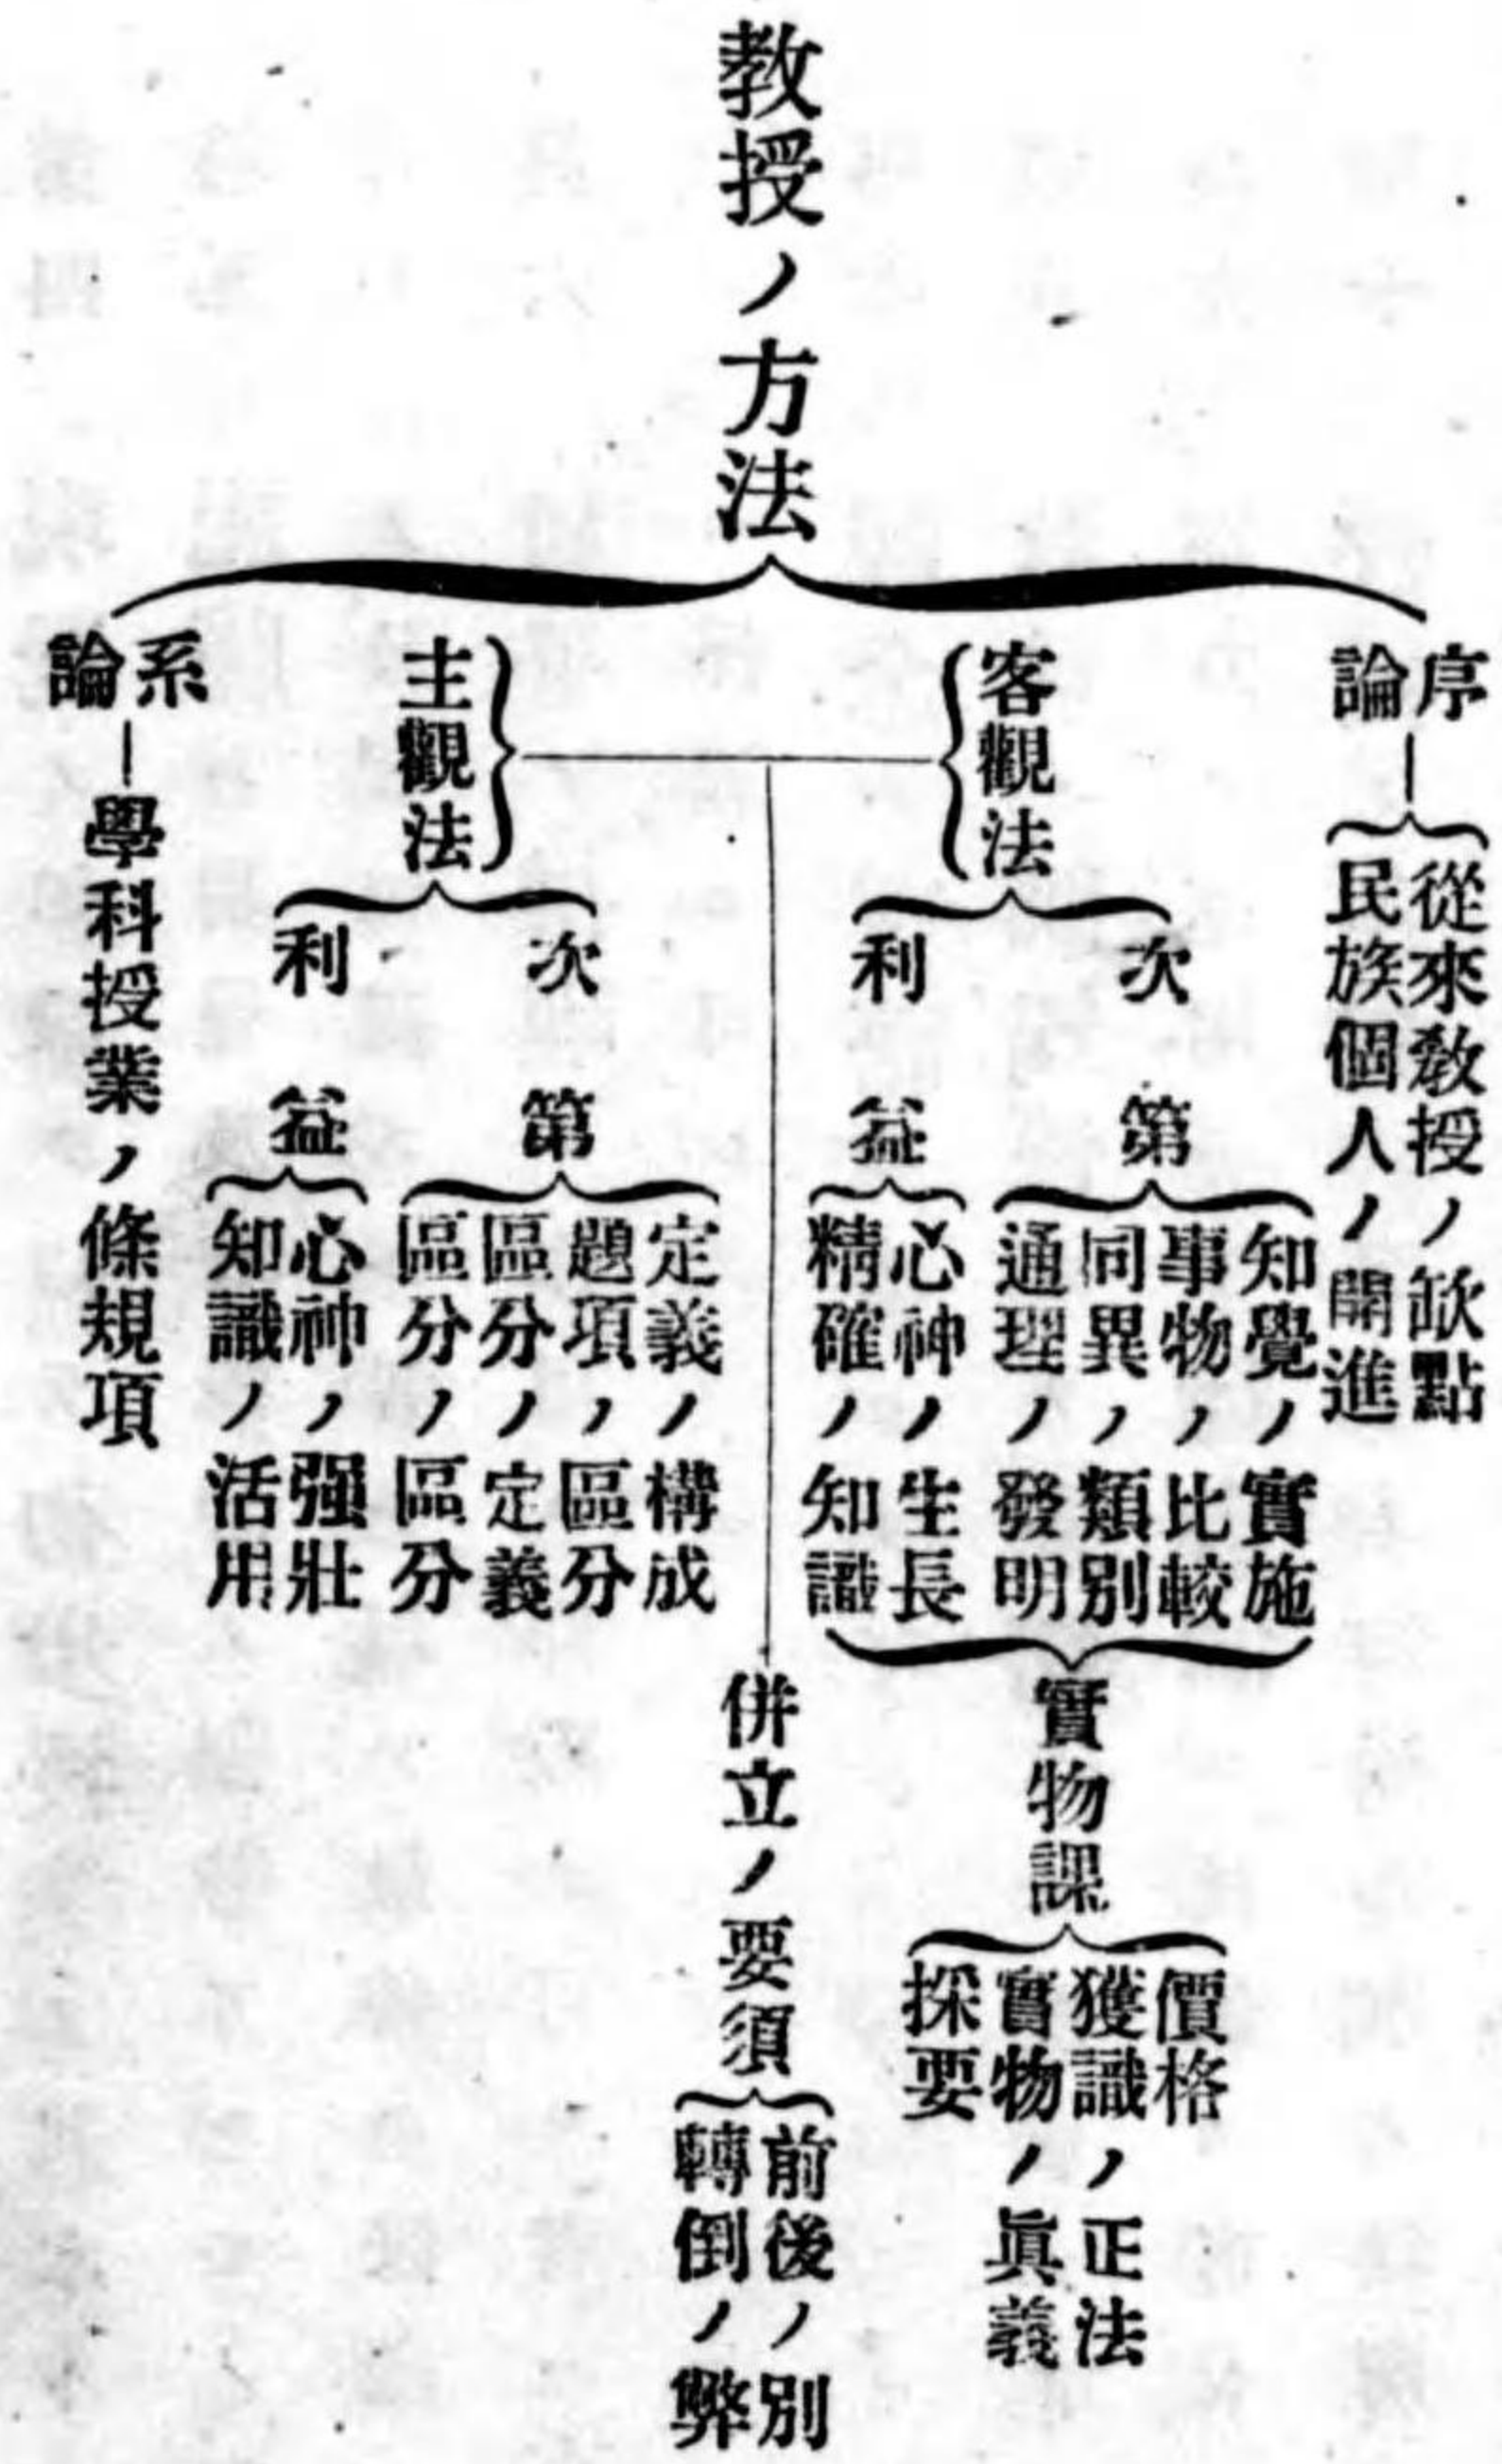 教授ノ方法
序論
從來教授ノ缺點
民族個人ノ開進
客觀法
次第
知覺ノ實施
事物ノ比較
同異ノ類別
通理ノ發明
利益
心神ノ生長
精確ノ知識
實物課
價格
獲識ノ正法
實物ノ眞義
採要
併立ノ要須
前後ノ別
轉倒ノ弊
主觀法
次第
定義ノ構成
題項ノ區分
區分ノ定義
區分ノ區分
利益
心神ノ强壯
知識ノ活用
系論
學科授業ノ條規項